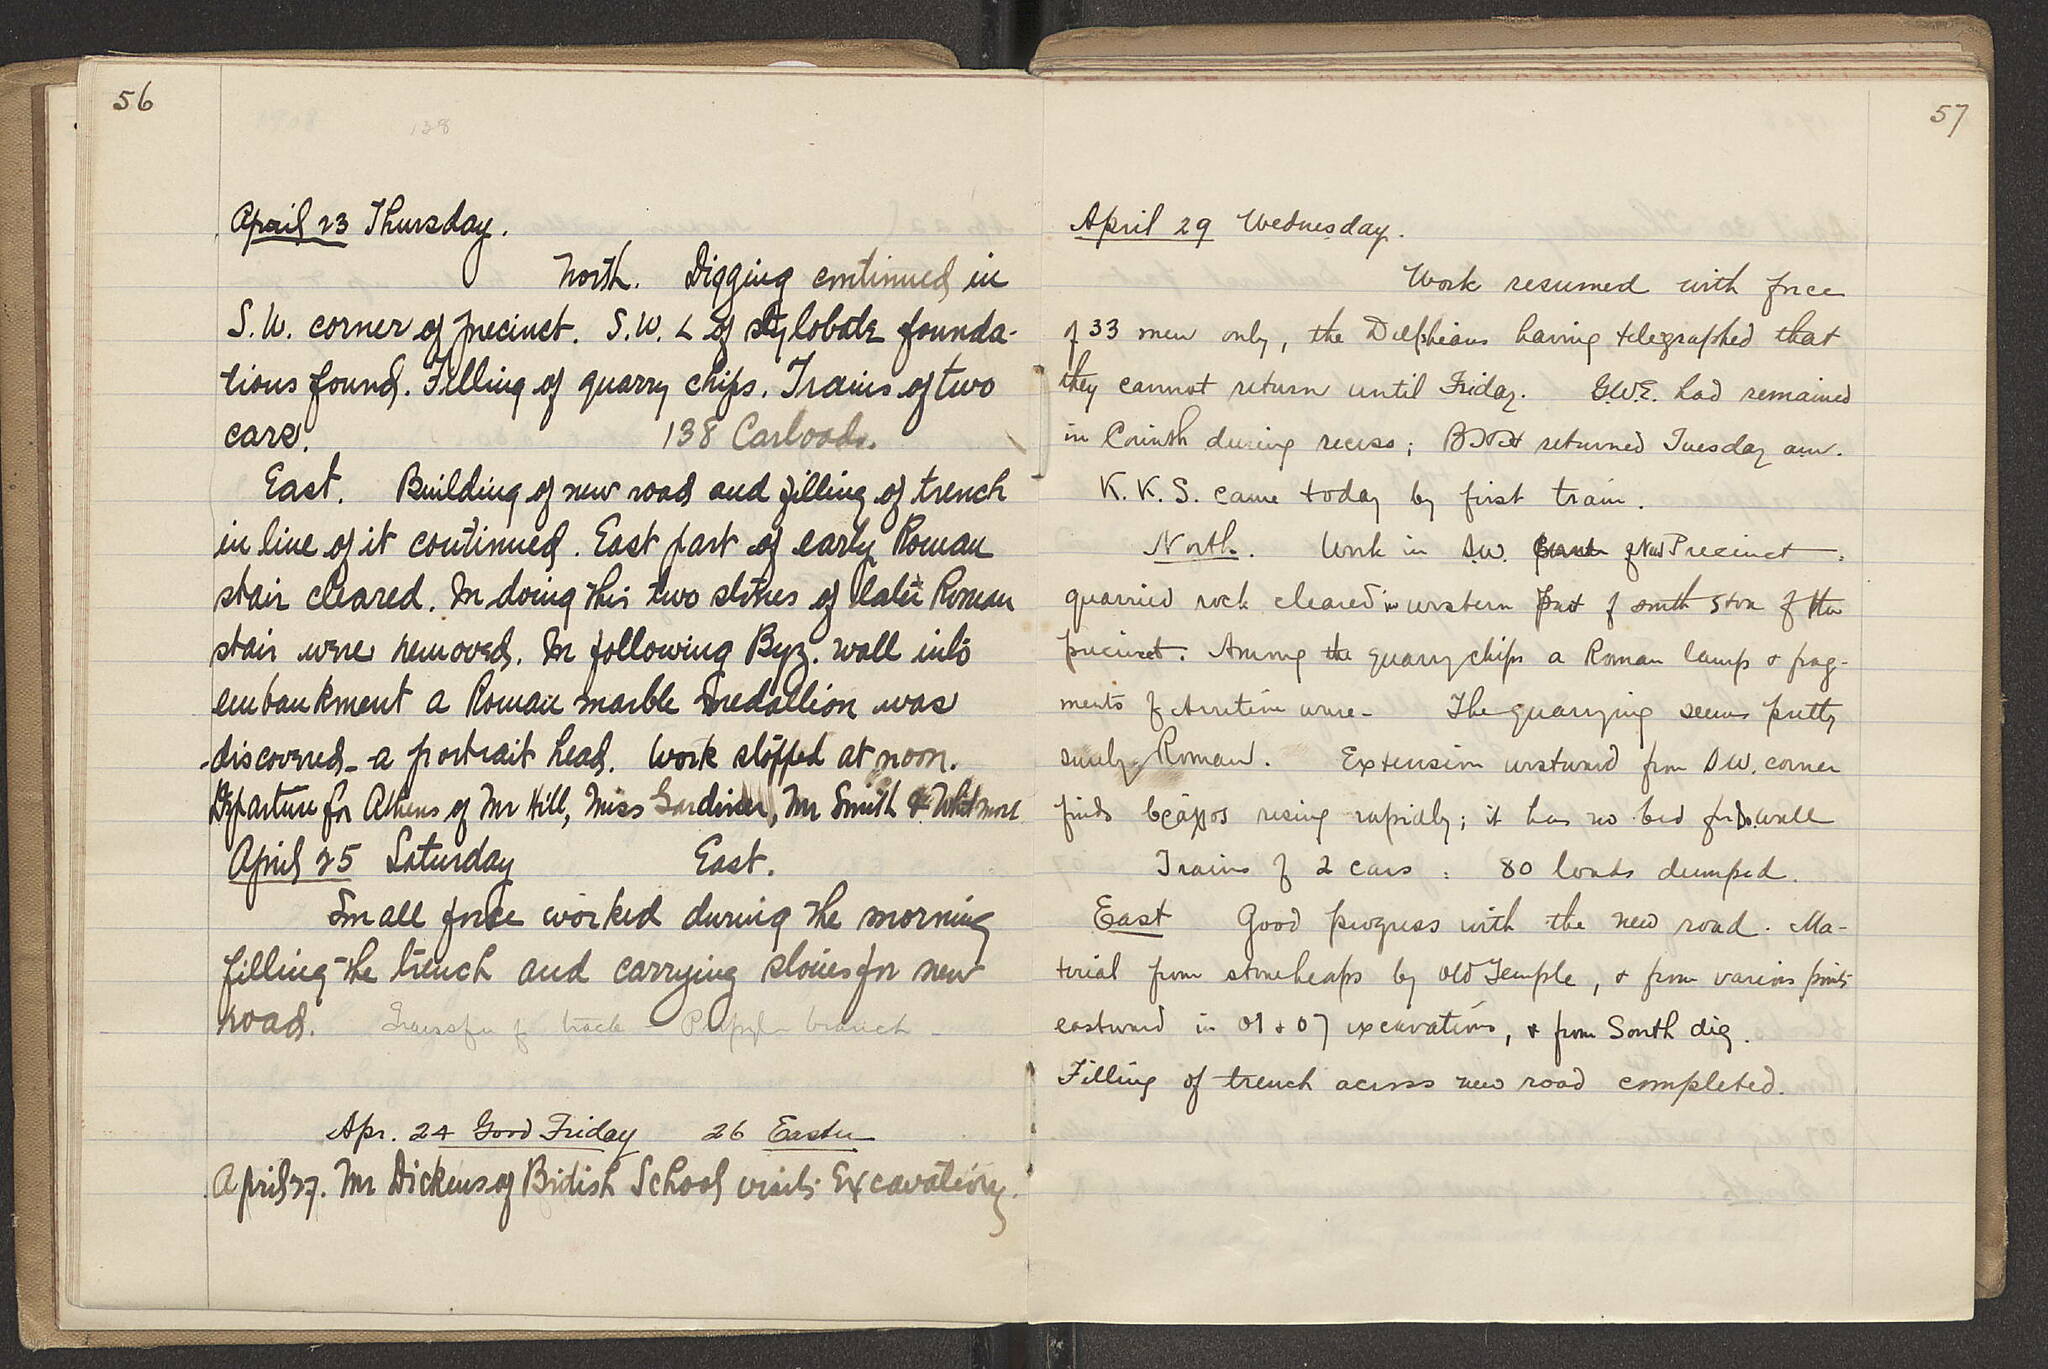 56
138
April 23 Thursday.
North. Digging continued in
S.W. corner of precinct. S.W. L of stylobate founda-
tions found. Filling of quarry chips. Trains of two
cars. 138 Carloads.
East. Building of new road and filling of trench
in line of it continued. East part of early Roman
stair cleared. In doing this two stones of later Roman
stair were removed. In following Byz. wall into
embankment a Roman marble medallion was
discovered - a portrait head. Work stopped at noon.
Departure for Athens of Mr Hill, Miss Gardiner, Mr Smith & Whitmore
April 25 Saturday East.
Small force worked during the morning
filling the trench and carrying stones for new
road. Transfer of track branch
Apr. 24 Good Friday 26 Easter
April 27. Mr Dickens of British School visits Excavations.
57
April 29 Wednesday.
Work resumed with force
of 33 men only, the Delphians having telegraphed that
they cannot return until Friday. G.W.E. had remained
in Corinth during recess; BHH returned Tuesday a.m.
K.K.S. came today by first train.
North. Work in S.W. of Precinct.
quarried rock cleared in western part of south stoa of the
precinct. Among the quarry chips a Roman lamp & frag-
ments of Arretine ware - The quarrying seems pretty
surely Roman. Extension westward from S.W. corner
finds βράχος rising rapidly; it has no bed for wall
Trains of 2 cars: 80 loads dumped.
East Good progress with the new road. Ma-
terial from stoneheaps by Old Temple, & from various points
eastward in 01 & 07 excavations, & from South dig.
Filling of trench across new road completed.